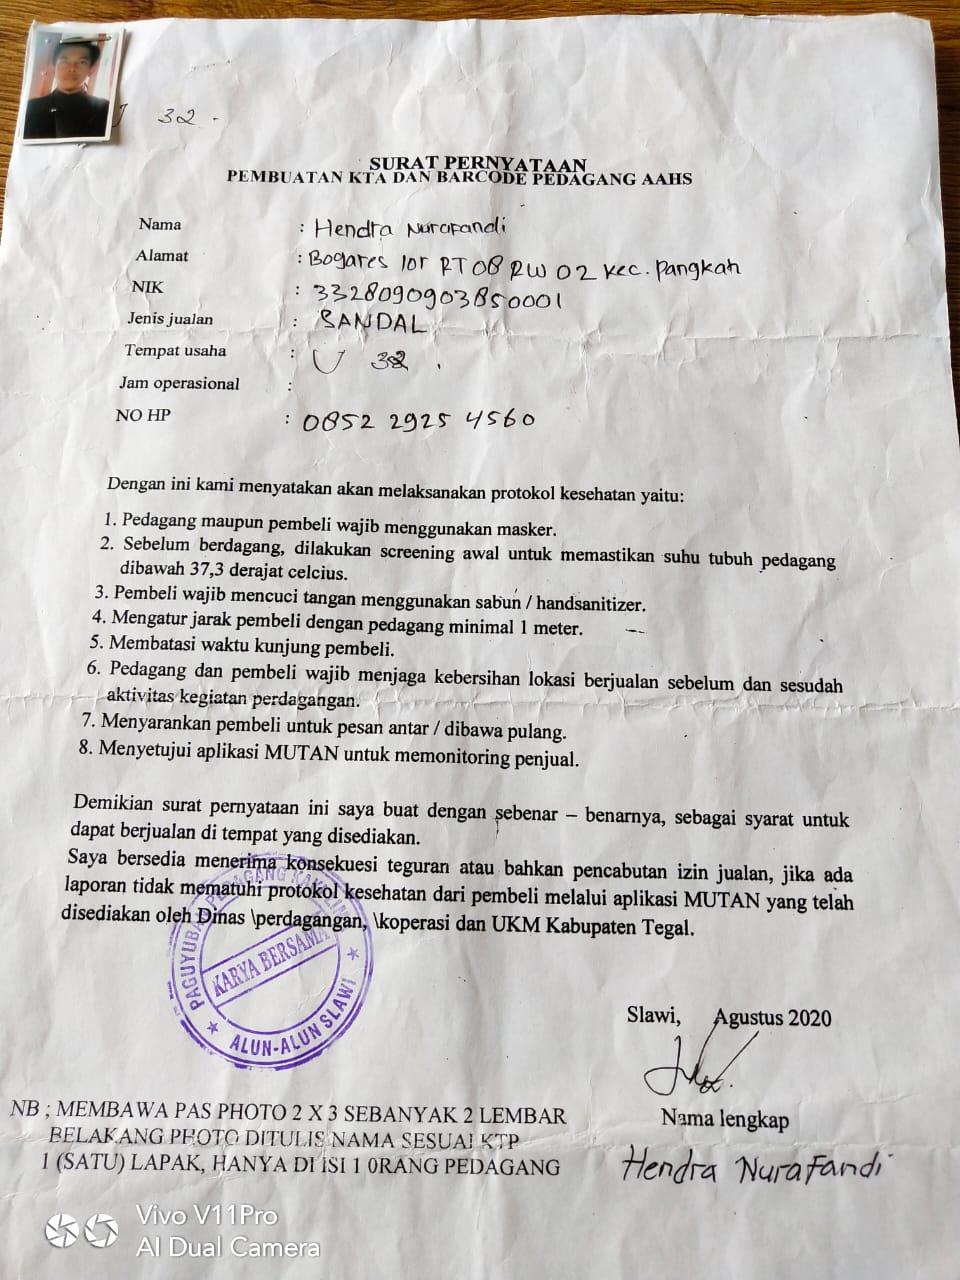 32 -
SURAT PERNYATAAN
PEMBUATAN KTA DAN BARCODE PEDAGANG AAHS
Nama : Hendra Nurafandi
Alamat : Bogares lor RT 08 RW 02 kec. Pangkah
NIK : 3328090903850001
Jenis jualan : SANDAL
Tempat usaha : U 32 .
Jam operasional :
NO HP : 0852 2925 4560
Dengan ini kami menyatakan akan melaksanakan protokol kesehatan yaitu:
1. Pedagang maupun pembeli wajib menggunakan masker.
2. Sebelum berdagang, dilakukan screening awal untuk memastikan suhu tubuh pedagang
dibawah 37,3 derajat celcius.
3. Pembeli wajib mencuci tangan menggunakan sabun / handsanitizer.
4. Mengatur jarak pembeli dengan pedagang minimal 1 meter.
5. Membatasi waktu kunjung pembeli.
6. Pedagang dan pembeli wajib menjaga kebersihan lokasi berjualan sebelum dan sesudah
aktivitas kegiatan perdagangan.
7. Menyarankan pembeli untuk pesan antar / dibawa pulang.
8. Menyetujui aplikasi MUTAN untuk memonitoring penjual.
Demikian surat pernyataan ini saya buat dengan sebenar – benarnya, sebagai syarat untuk
dapat berjualan di tempat yang disediakan.
Saya bersedia menerima konsekuesi teguran atau bahkan pencabutan izin jualan, jika ada
laporan tidak mematuhi protokol kesehatan dari pembeli melalui aplikasi MUTAN yang telah
disediakan oleh Dinas \perdagangan, \koperasi dan UKM Kabupaten Tegal.
PAGUYUBAN PEDAGANG KAKI LIMA
KARYA BERSAMA
ALUN-ALUN SLAWI
Slawi, Agustus 2020
Nama lengkap
Hendra Nurafandi
NB ; MEMBAWA PAS PHOTO 2 X 3 SEBANYAK 2 LEMBAR
BELAKANG PHOTO DITULIS NAMA SESUAI KTP
1 (SATU) LAPAK, HANYA DI ISI 1 0RANG PEDAGANG
Vivo V11Pro
AI Dual Camera